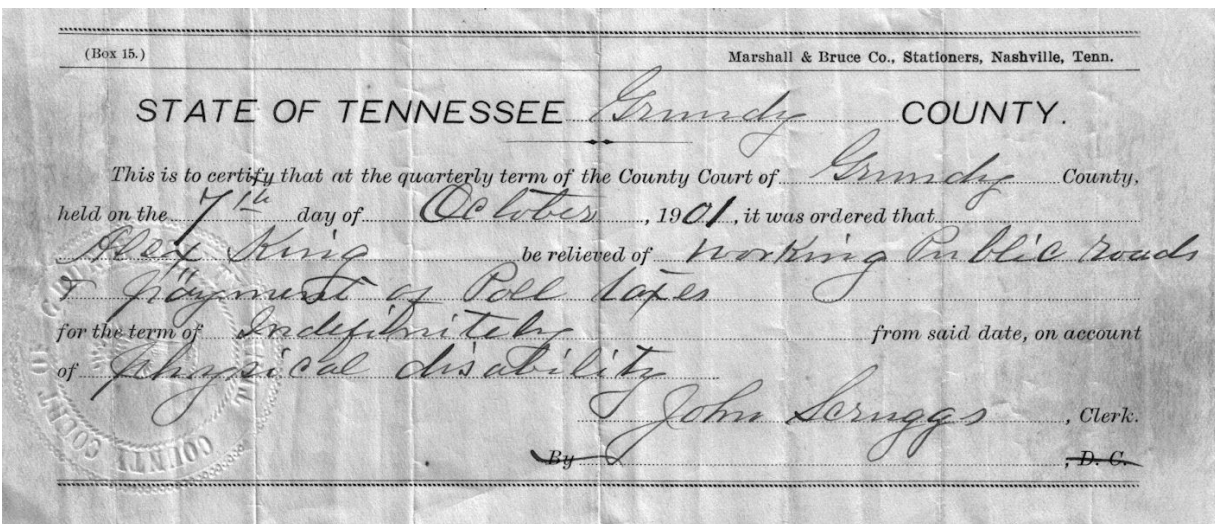 (Box 15.) Marshall & Bruce Co., Stationers, Nashville, Tenn.
STATE OF TENNESSEE Grundy COUNTY.
This is to certify that at the quarterly term of the County Court of Grundy County,
held on the 7th day of October, 1901, it was ordered that
Alex King be relieved of working Public roads
& payment of Poll taxes
for the term of Indefinitely from said date, on account
of physical disability
John Scruggs, Clerk.
By , D. C.
COUNTY COURT